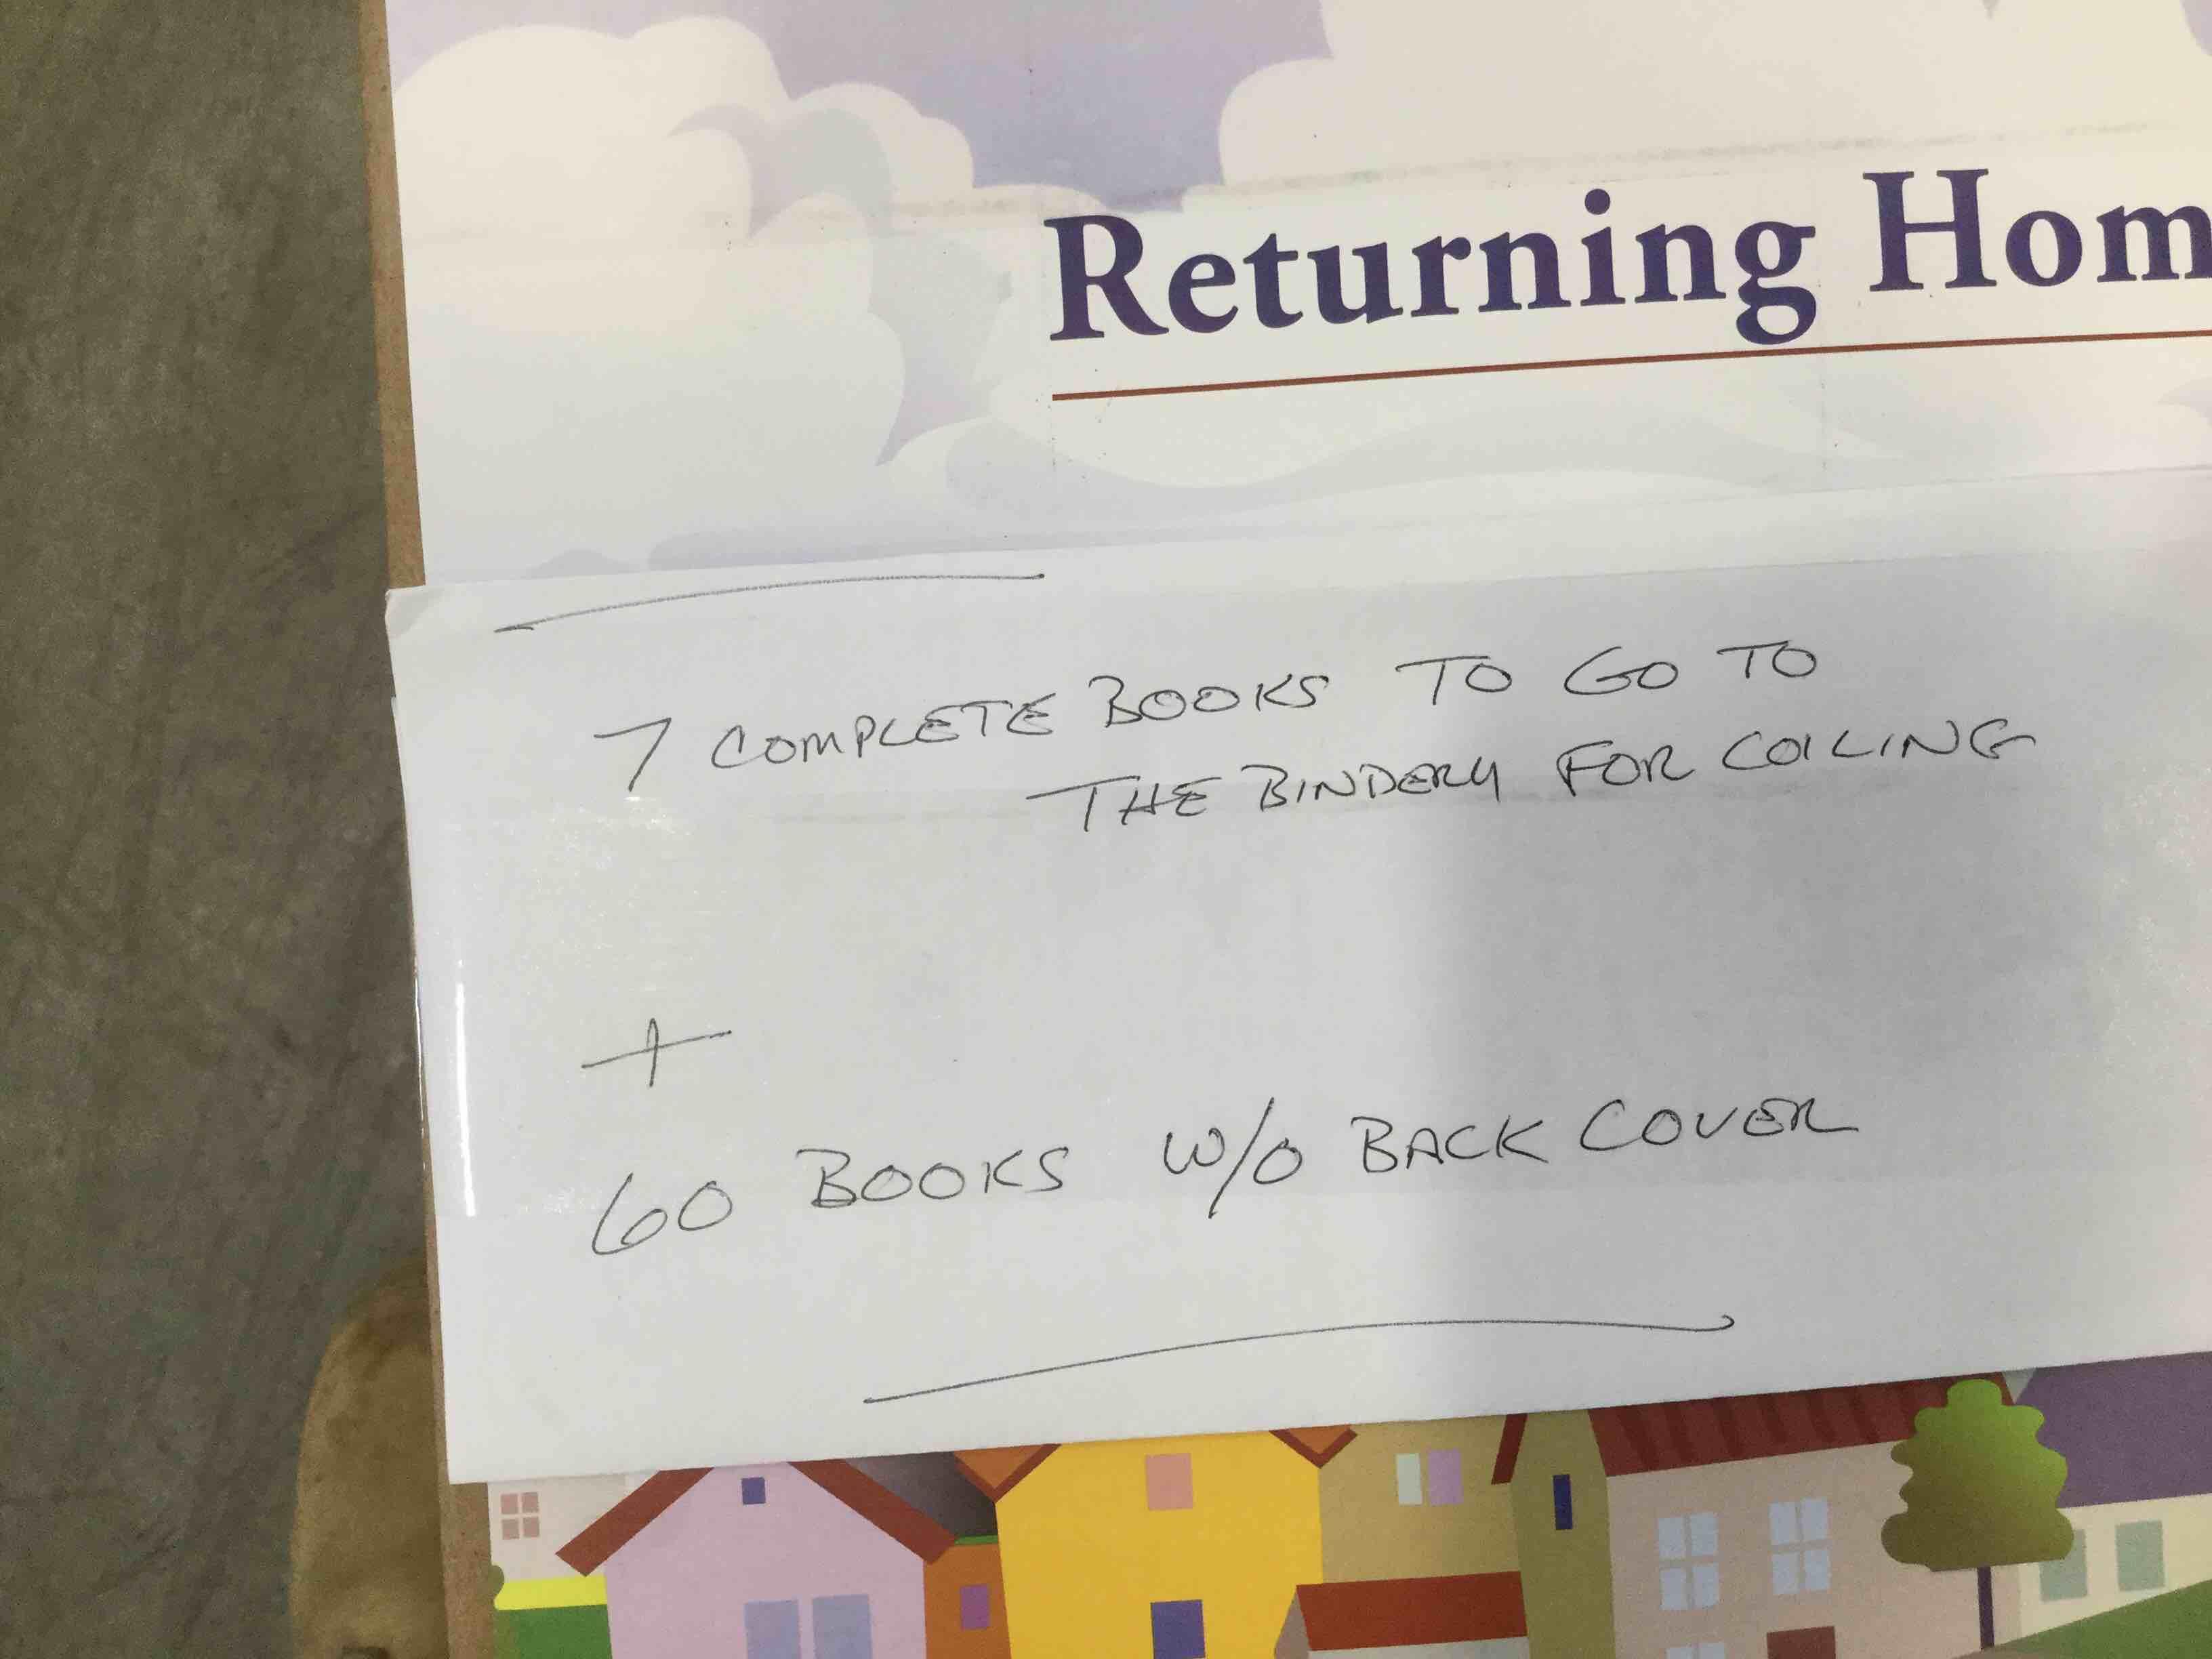 Returning Hom
7 COMPLETE BOOKS TO GO TO
THE BINDERY FOR COILING
+
60 BOOKS W/O BACK COVER